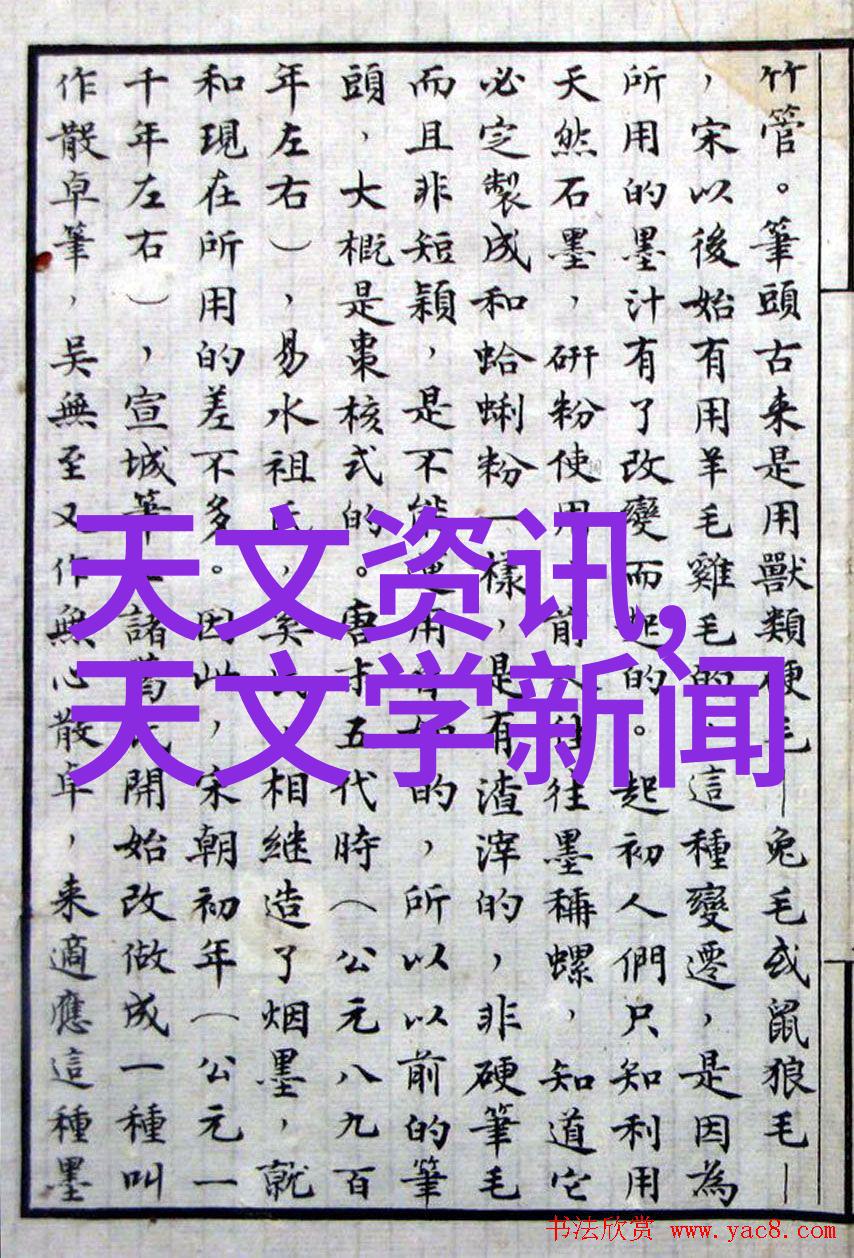 竹管。筆頭古来是用獸類硬毛—兔毛或鼠狼毛—
，宋以後始有用羊毛雞毛的這種變遷，是因為
所用的墨汁有了改變而起的。起初人們只知利用
天然石墨，研粉使用前人往往墨稱螺，知道它
必定製成和蛤蜊粉一樣，是有渣滓的，非硬筆毛
而且非短穎，是不能運用的，所以以前的筆
頭，大概是棗核式的。唐五代時（公元八九百
年左右），易水祖氏奚氏相继造了烟墨，就
和現在所用的差不多。因此，宋朝初年（公元一
千年左右），宣城筆諸葛氏開始改做成一種叫
作散卓筆，吴無至又作無心散卓，来適應這種墨
天文资讯,
天文学新闻
书法欣赏 www.yac8.com